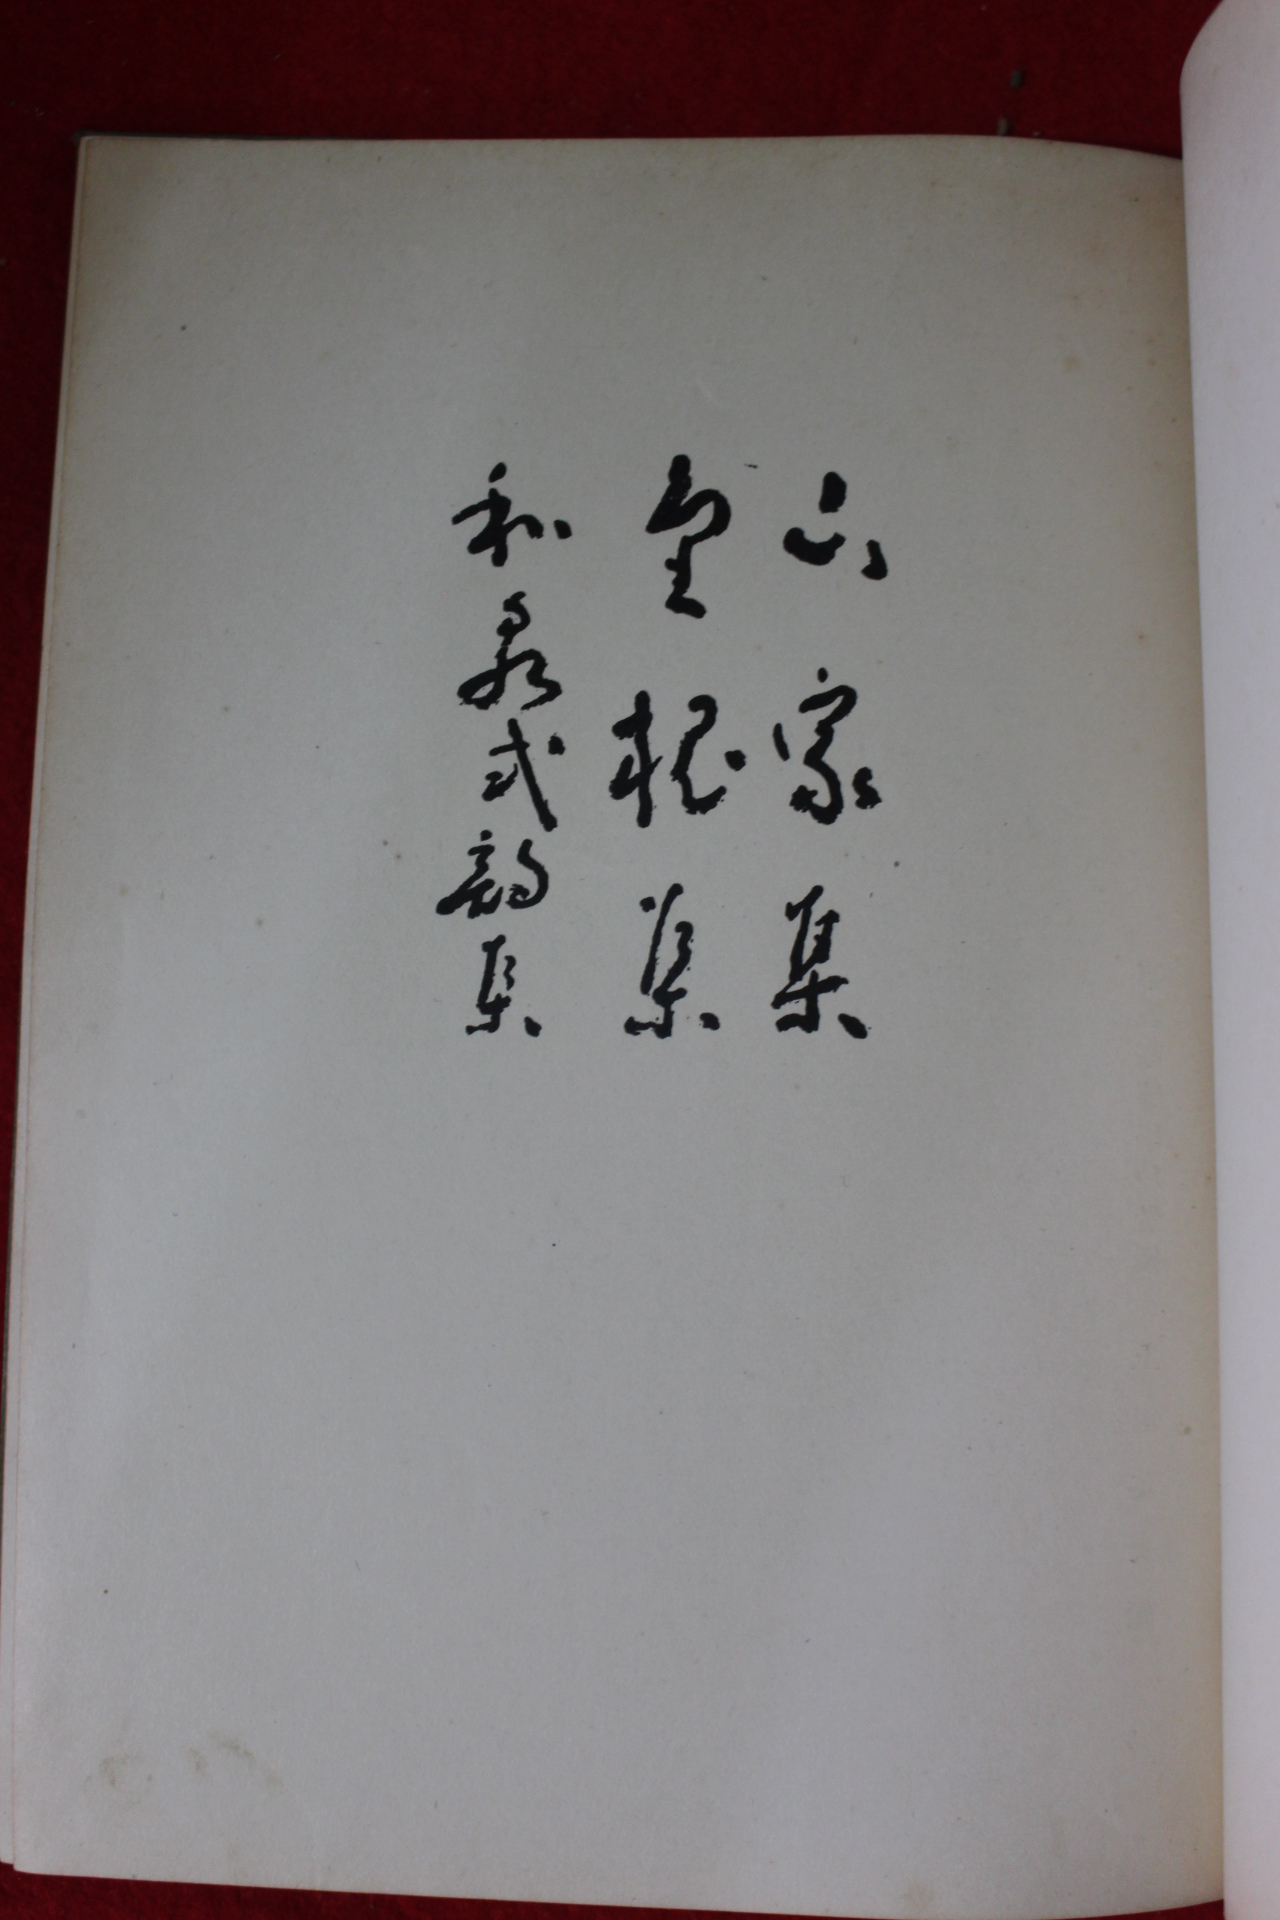 山家集
金槐集
和泉式部集